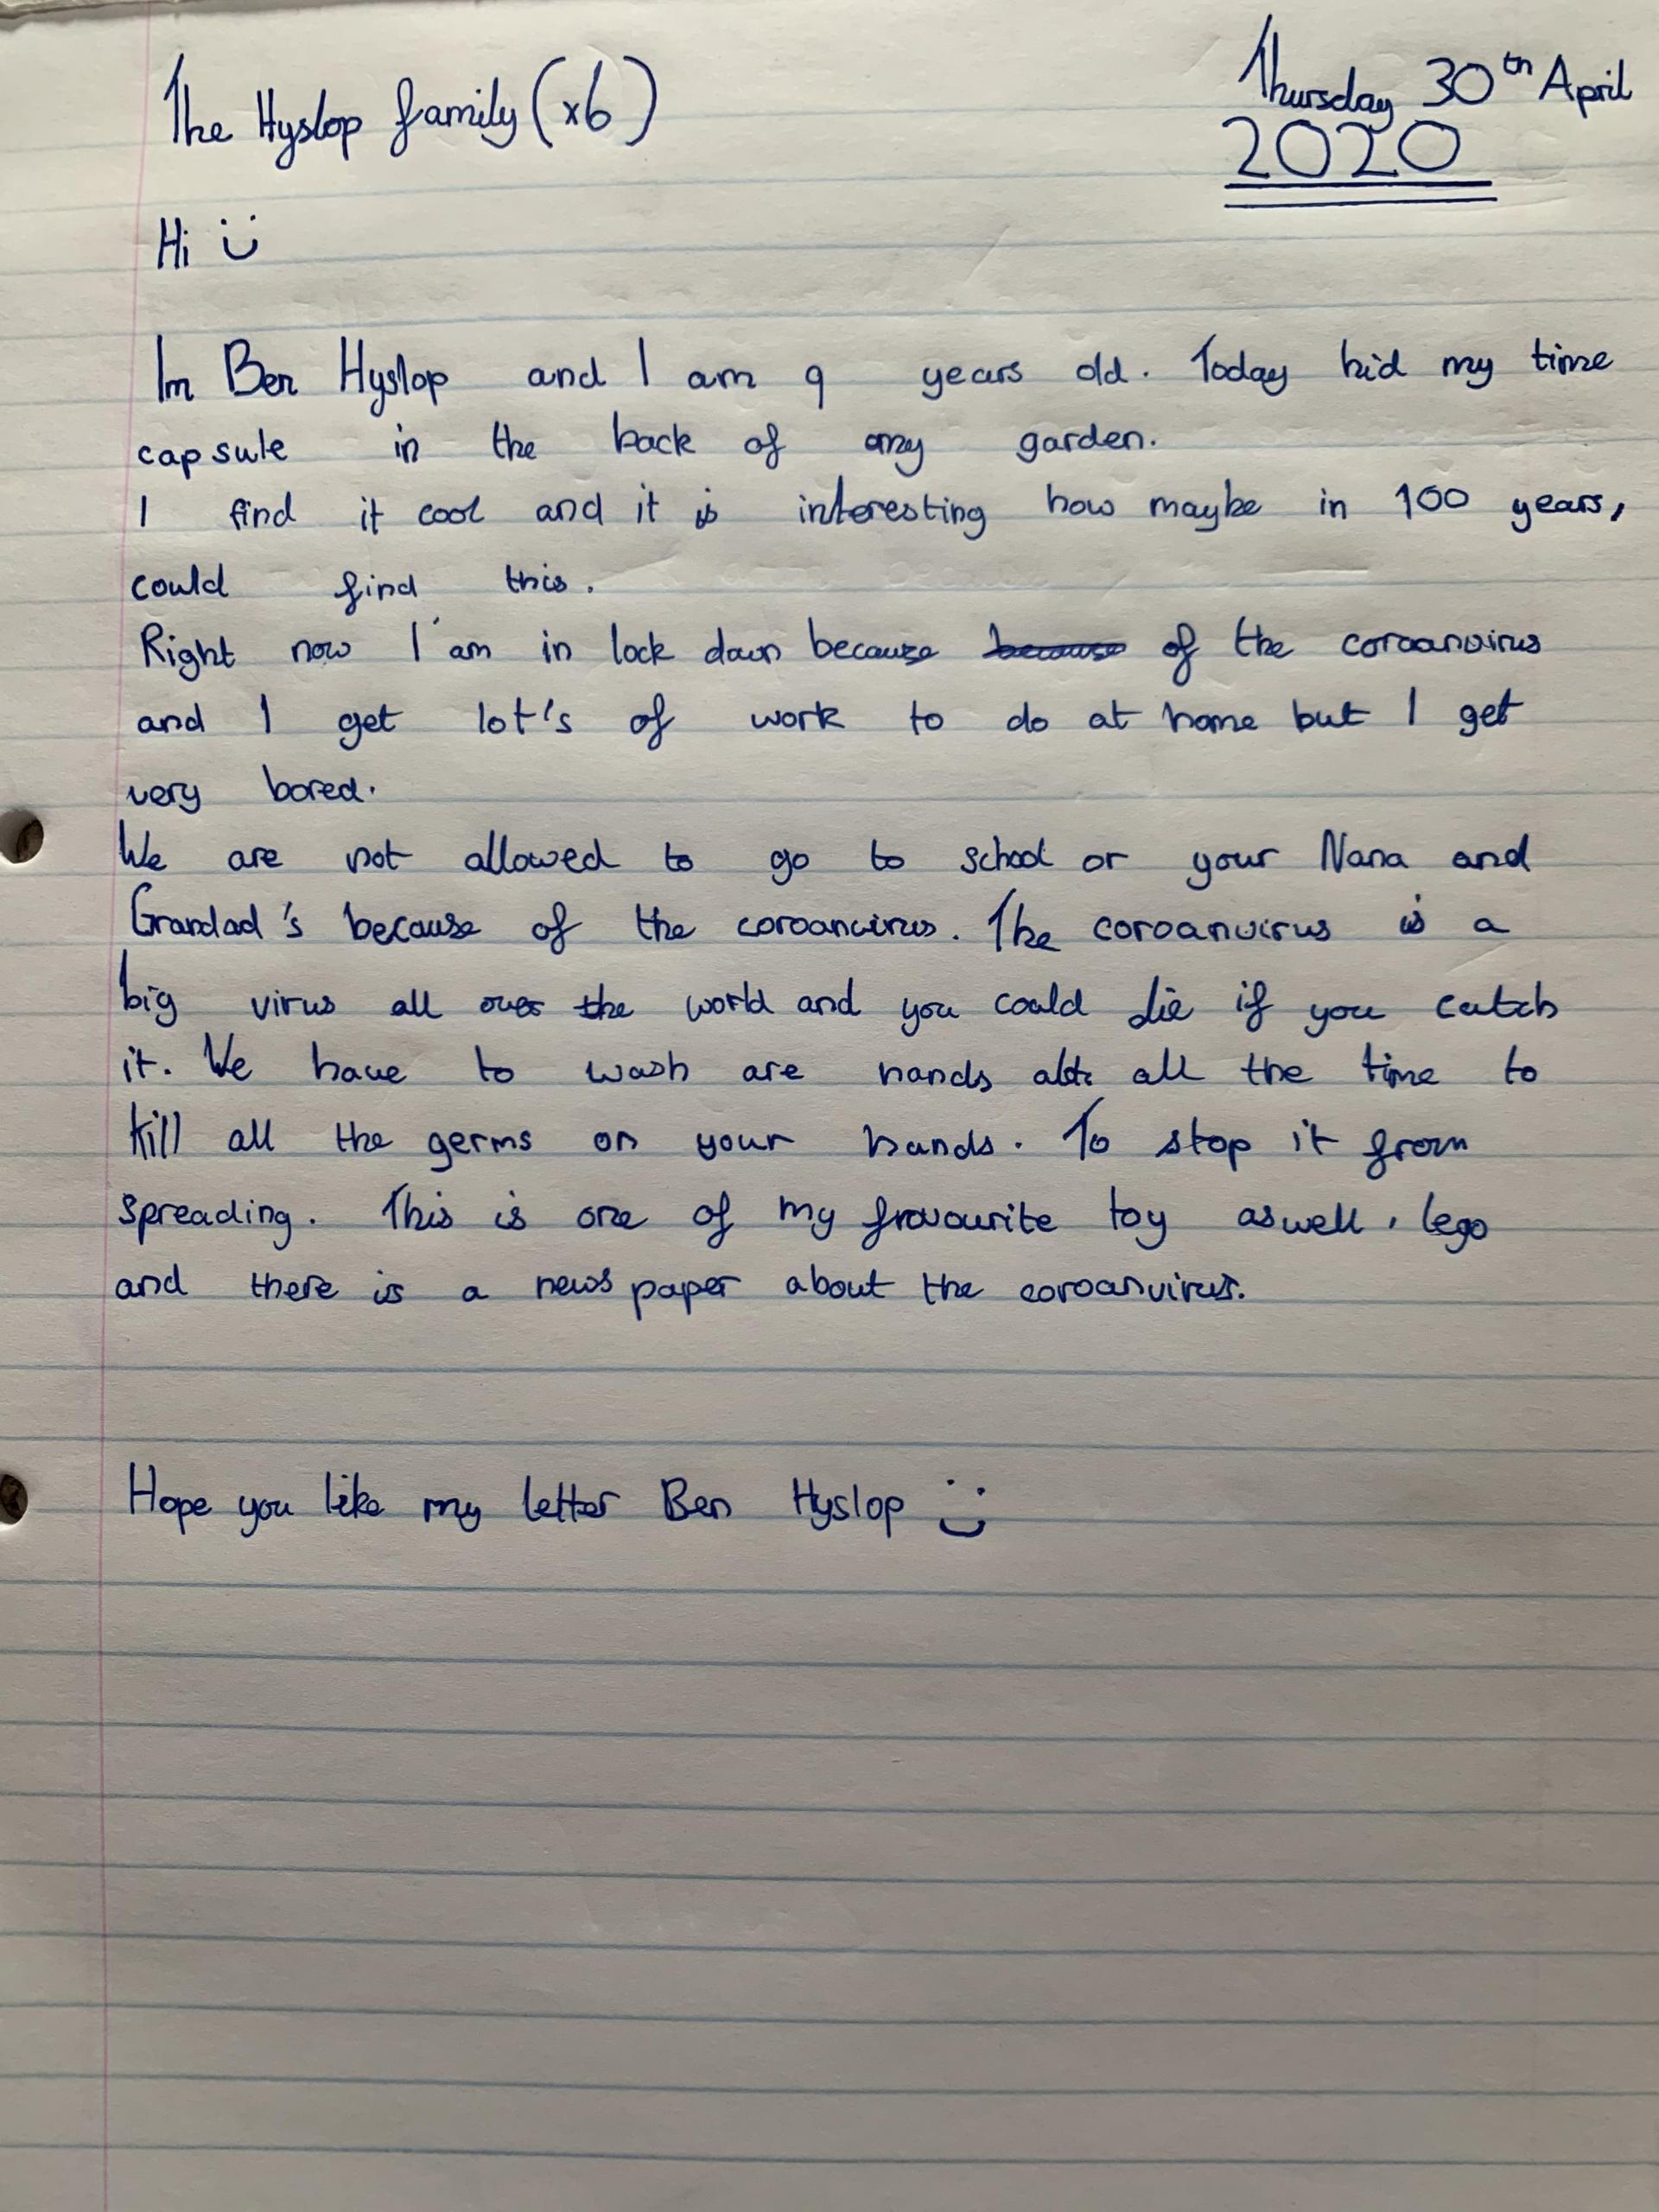 The Hyslop family (x6)
Thursday 30th April
2020
Hi
Im Ben Hyslop and I am 9 years old. Today hid my time
capsule in the back of my garden.
I find it cool and it is interesting how maybe in 100 years,
could find this.
Right now I'am in lock down because because of the coroanvirus
and I get lot's of work to do at home but I get
very bored.
We are not allowed to go to school or your Nana and
Grandad's because of the coroanvirus. The coroanvirus is a
big virus all over the world and you could die if you catch
it. We have to wash are hands all the time to
kill all the germs on your hands. To stop it from
spreading. This is one of my fravourite toy aswell, lego
and there is a news paper about the coroanvirus.
Hope you like my letter Ben Hyslop